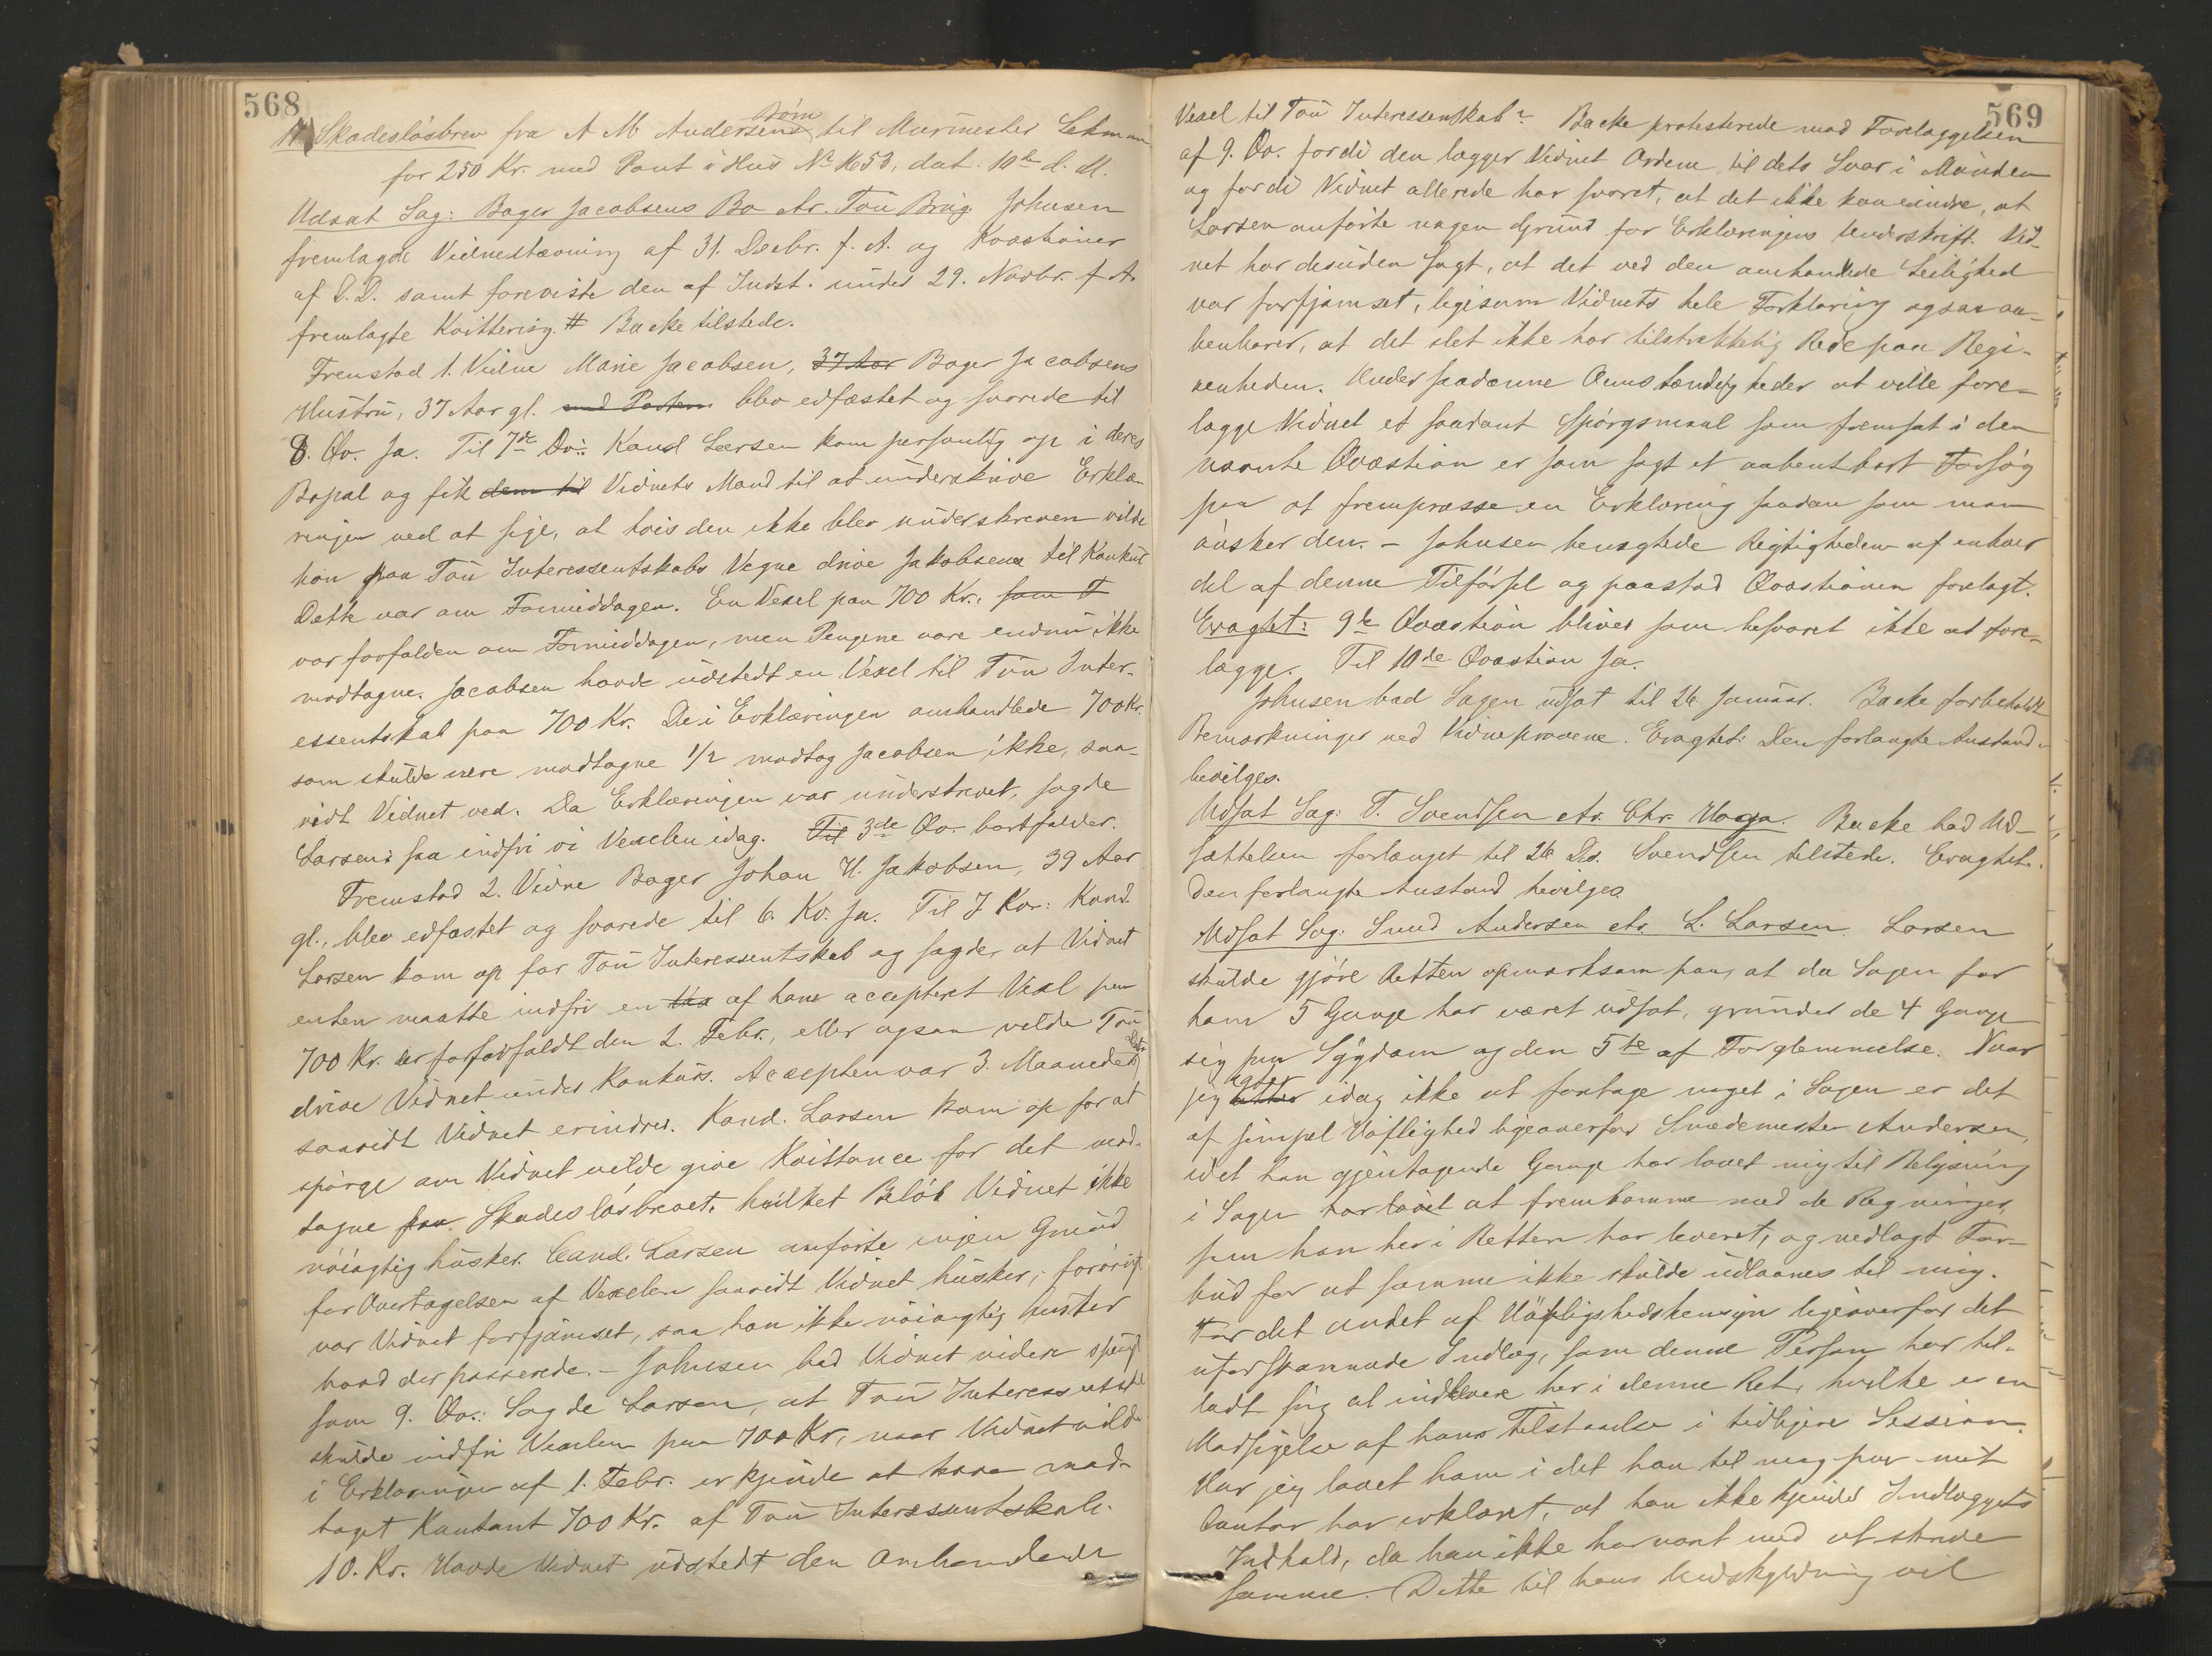 568
17. Skadesløsbrev fra A M Andersens Børn til Murmester Lehmann
for 250 Kr. med Pant i Hus No 1653, dat. 10de d. M.
Udsat Sag: Bager Jacobsens Bo ctr. Tou Brug. Johnsen
fremlagde Vidnestævning af 31. Decbr. f. A. og Kvæstioner
af D.D. samt foreviste den af Indst. under 29. Novbr. f. A.
fremlagte Kvittering. # Backe tilstede.
Fremstod 1. Vidne Marie Jacobsen, 37 Aar Bager Jacobsens
Hustru, 37 Aar gl. med Parten blev edfæstet og svarede til
8. Qv. Ja. Til 7de Qv: Kand Larsen kom personlig op i deres
Bopæl og fik dem til Vidnets Mand til at underskrive Erklæ-
ringen ved at sige, at hvis den ikke blev underskreven vilde
han paa Tou Interessentskabs Vegne drive Jakobsen til Konkurs
Dette var om Formiddagen. En Vexel paa 700 Kr., som T
var forfalden om Formiddagen, men Pengene vare endnu ikke
modtagne. Jacobsen havde udstedt en Vexel til Tou Inter-
essentskab paa 700 Kr. De i Erklæringen omhandlede 700 Kr.
som skulde være modtagne 1/2 modtog Jacobsen ikke, saa-
vidt Vidnet ved. Da Erklæringen var underskrevet, sagde
Larsen: saa indfri vi Vexelen idag. Til 3de Qv. bortfalder.
Fremstod 2. Vidne Bager Johan H. Jakobsen, 39 Aar
gl., blev edfæstet og svarede til 6. Kv. Ja. Til 7 Kv: Kand.
Larsen kom op for Tou Interessentskab og sagde, at Vidnet
enten maatte indfri en Vex af ham accepteret Vexel paa
700 Kr. der forfaldt den 2. Febr., eller ogsaa vilde Tou
drive Vidnet under Konkurs. Accepten var 3 Maaneders Dato
saavidt Vidnet erindrer. Kand. Larsen kom op for at
spørge om Vidnet vilde give Kvittance for det mod-
tagne paa Skadesløsbrevet, hvilket Beløb Vidnet ikke
nøiagtig husker. Cand. Larsen anførte ingen Grund
for Overtagelsen af Vexelen saavidt Vidnet husker; forøvrigt
var Vidnet forfjamset, saa han ikke nøiagtig husker
hvad der passerede. – Johnsen bad Vidnet videre spurgt
som 9. Qv.: Sagde Larsen, at Tou Interessentsk
skulde indfri Vexelen paa 700 Kr, naar Vidnet vilde
i Erklæringen af 1. Febr. erkjende at have mod-
taget Kontant 700 Kr. af Tou Interessentskab.
10. Kv. Havde Vidnet udstedt den omhandlede
569
Vexel til Tou Interessenskab? Backe protesterede mod Forelæggelsen
af 9. Qv. fordi den lægger Vidnet Ordene til dets Svar i Munden
og fordi Vidnet allerede har svaret, at det ikke kan erindre, at
Larsen anførte nogen Grund for Erklæringens Underskrift. Vid-
net har desuden sagt, at det ved den omhandlede Leilighed
var forfjamset, ligesom Vidnets hele Forklaring ogsaa aa-
benbarer, at det slet ikke har tilstrækkelig Rede paa Begi-
venheden. Under saadanne Omstændigheder at ville fore-
lægge Vidnet et saadant Spørgsmaal som fremsat i den
nævnte Qvæstion er som sagt et aabenbart Forsøg
paa at frempresse en Erklæring saadan som man
ønsker den. – Johnsen benægtede Rigtigheden af enhver
del af denne Tilførsel og paastod Qvæstionen forelagt.
Eragtet: 9de Qvæstion bliver som besvaret ikke at fore-
lægge. Til 10de Qvæstion Ja.
Johnsen bad Sagen udsat til 26 Januar. Backe forbeholdt
Bemærkninger ved Vidneprovene. Eragtet: Den forlangte Anstand
bevilges.
Udsat Sag: T. Svendsen ctr. Chr. Haga. Backe bad Ud-
sættelsen forlænget til 26 Ds. Svendsen tilstede. Eragtet:
Den forlangte Anstand bevilges
Udsat Sag: Smed Andersen ctr. L. Larsen. Larsen
skulde gjøre Retten opmærksom paa, at da Sagen for
ham 5 Gange har været udsat, grunder de 4 Gange
sig paa Sygdom og den 5te af Forglemmelse. Naar
jeg agter idag ikke at foretage noget i Sagen er det
af simpel Høflighed ligeoverfor Smedemester Andersen,
idet han gjentagende Gange har lovet mig til Belysning
i Sagen har lovet at fremkomme med de Regninger,
som han her i Retten har leveret, og nedlagt For-
bud for at samme ikke skulde udlaanes til mig.
For det andet af Høflighedshensyn ligeoverfor det
uforskammede Indlæg, som denne Person har til-
ladt sig at indlevere her i denne Ret, hvilke er en
Modsigelse af hans Tilstaaelse i tidligere Session.
Har jeg lovet ham i det han til mig paa mit
Contor har erklæret, at han ikke kjender Indlæggets
Indhold, da han ikke har været med at skrive
samme. Dette til hans Undskyldning vil